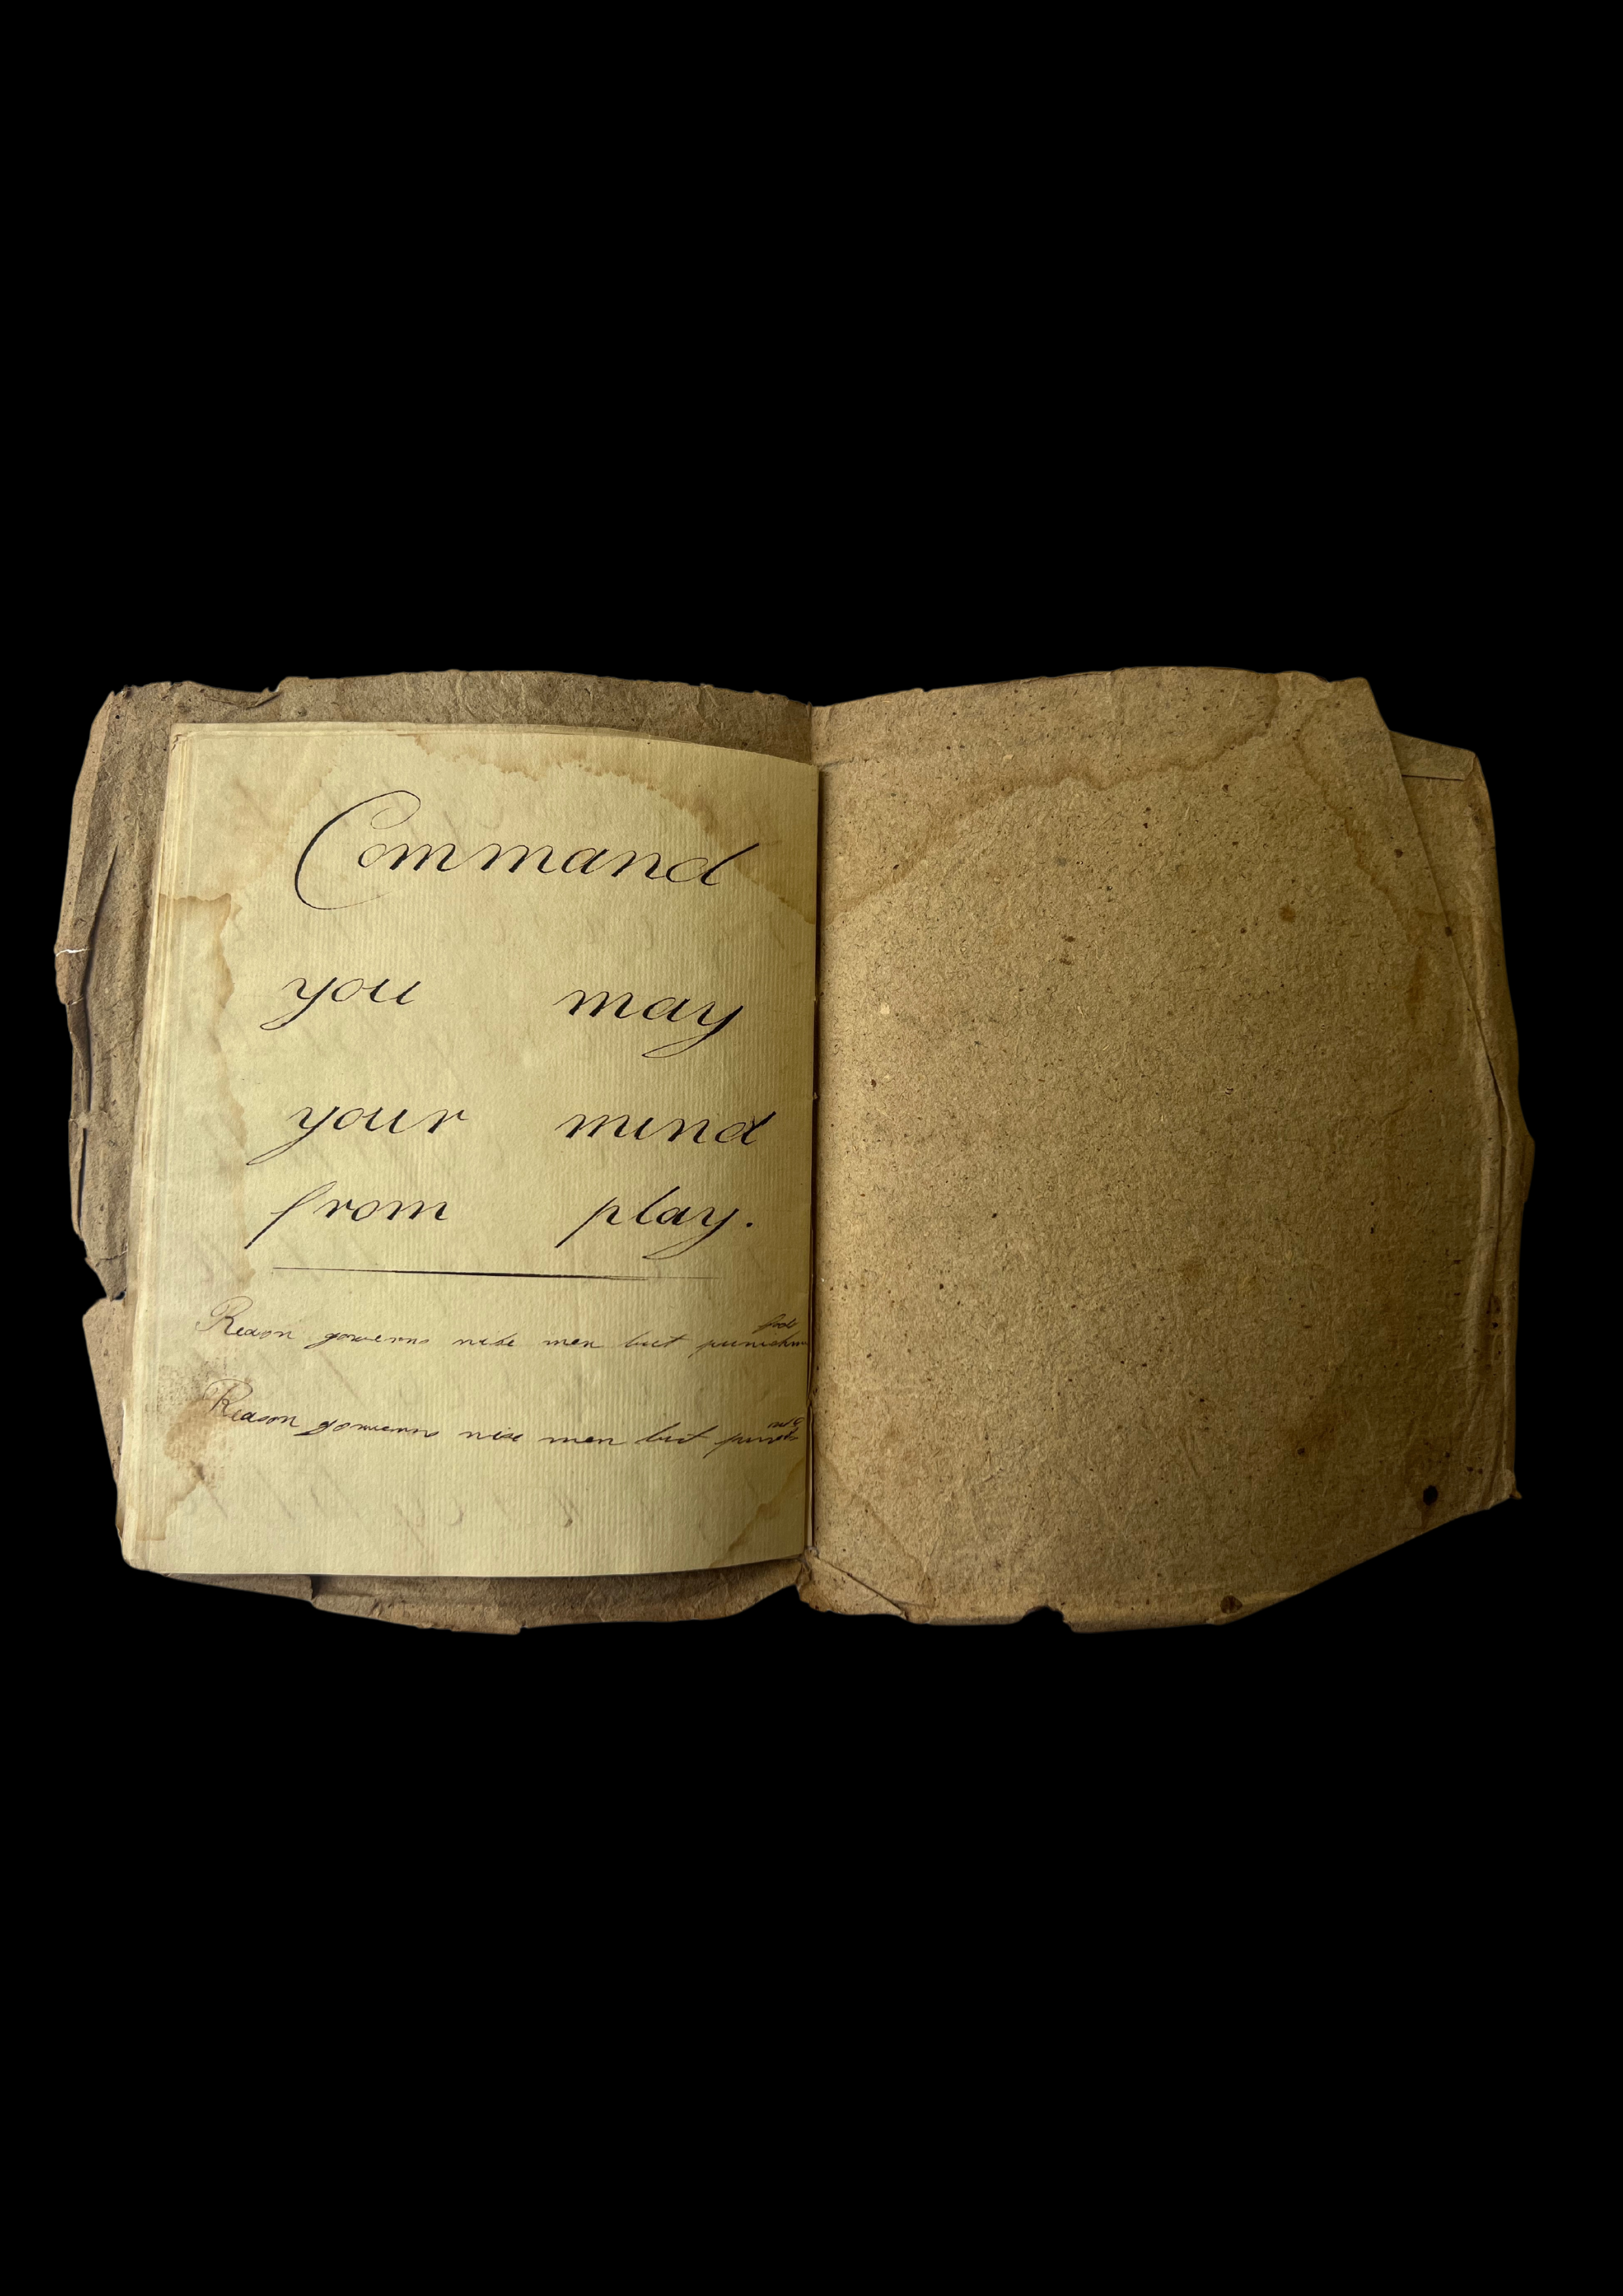 Command
you may
your mind
from play.
Reason gowerns wise men but punishm
Reason gowerns wise men but